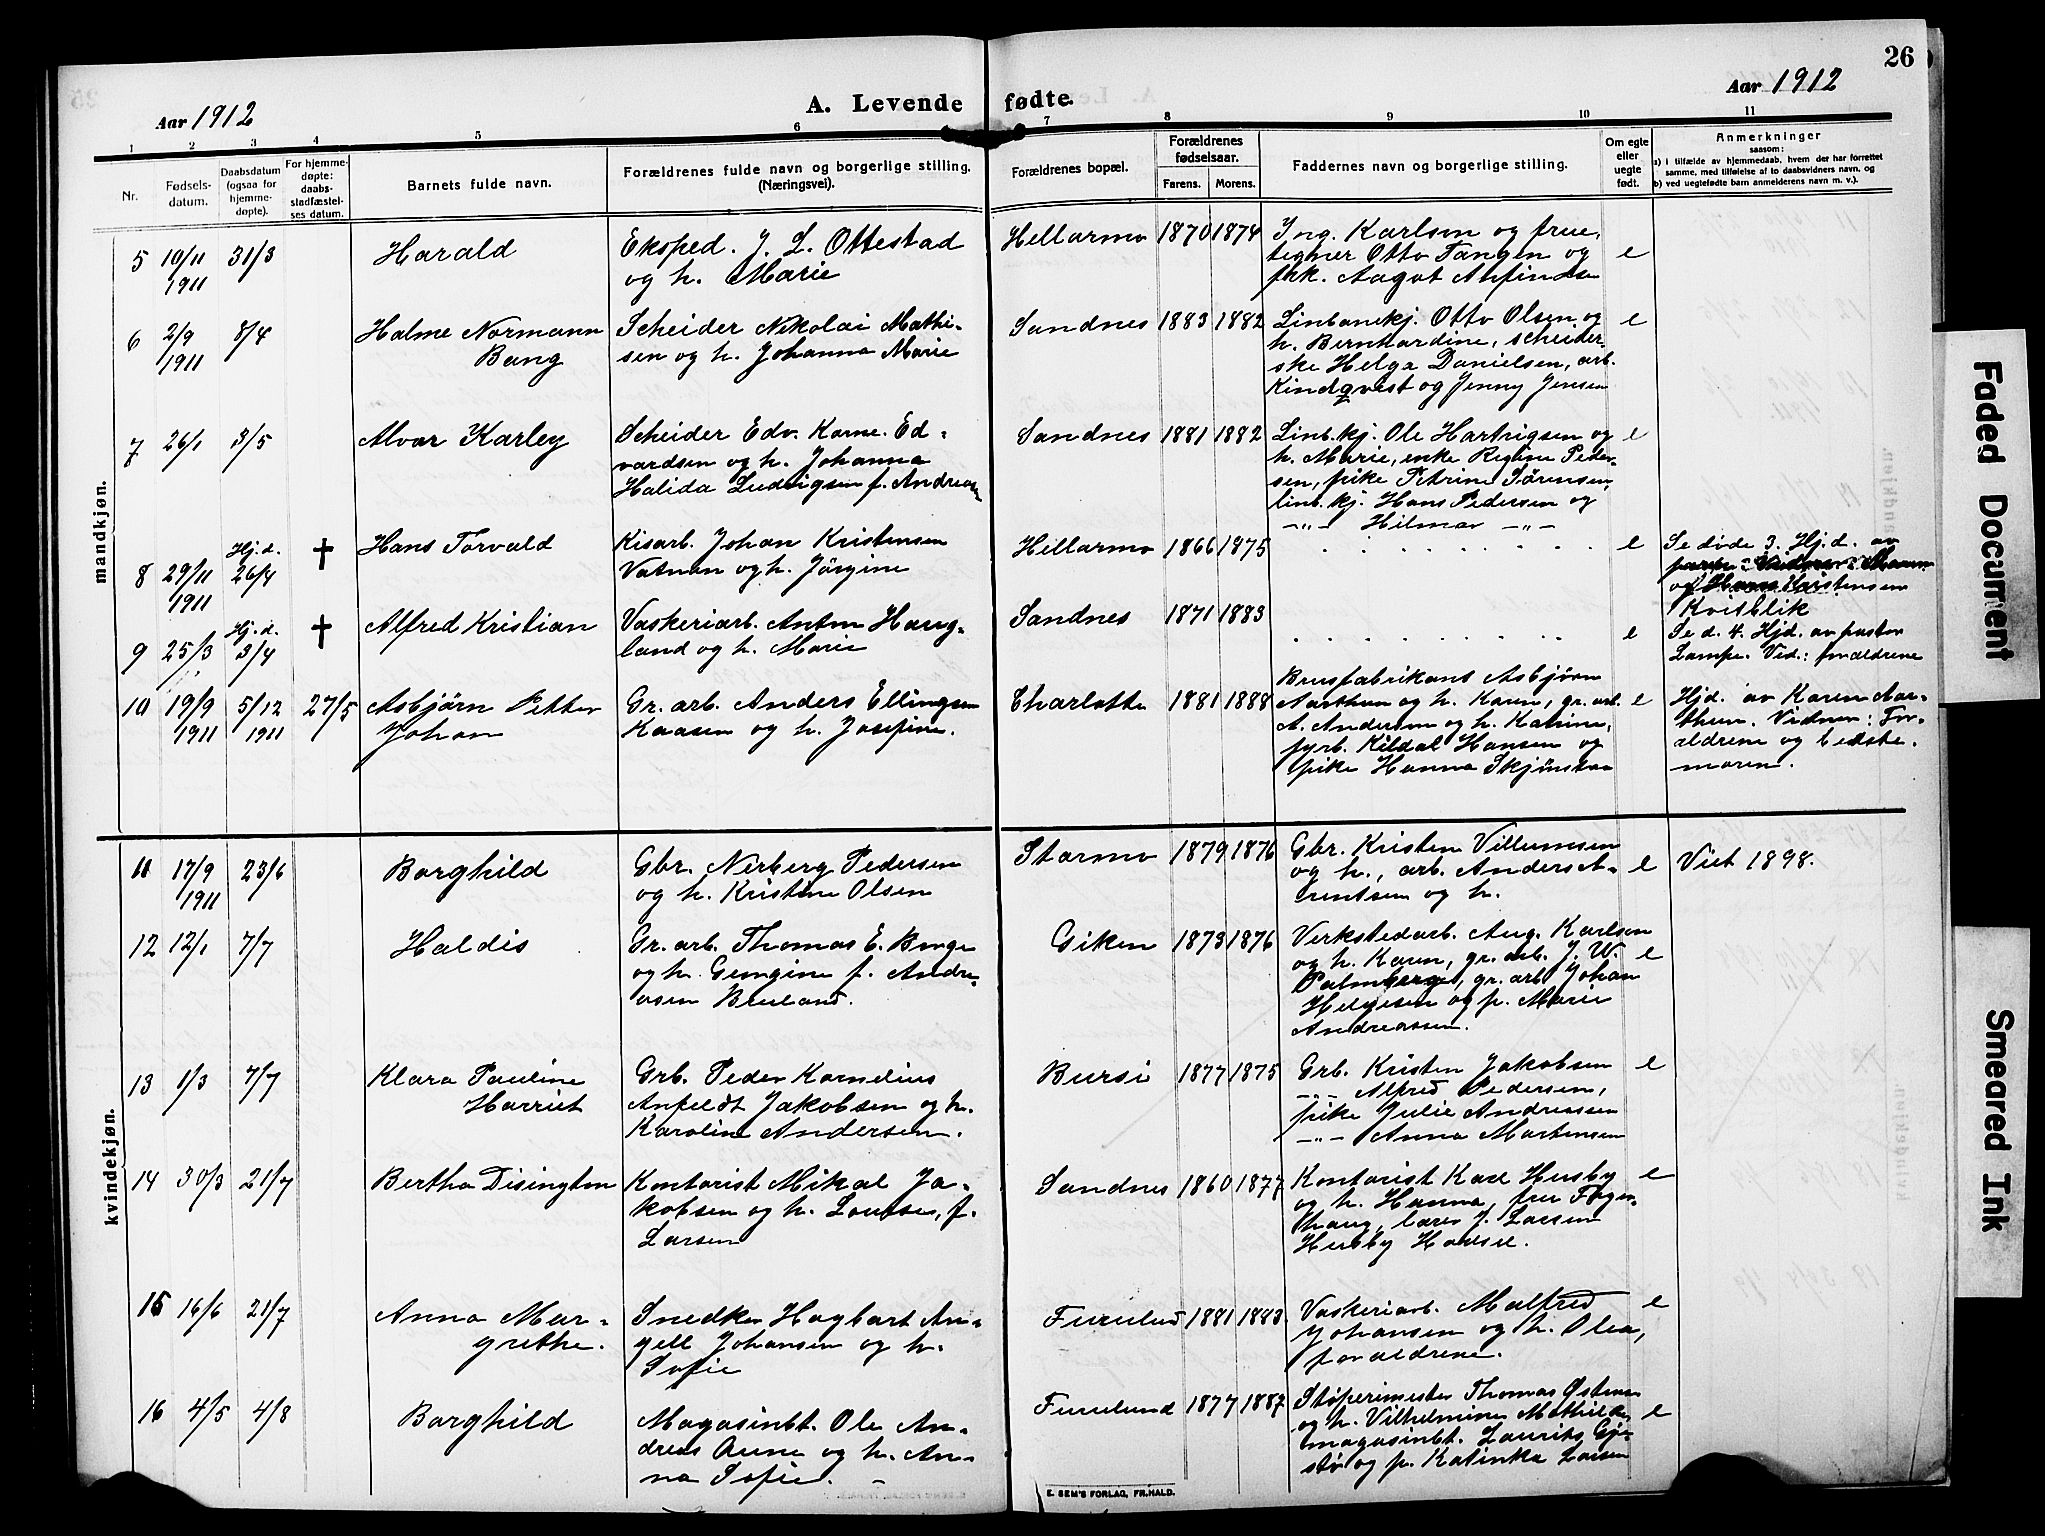 26
Aar 1912
A. Levende fødte.
Aar 1912
1 2 3 4 5 6 7 8 9 10 11
Nr.
Fødsels-
datum.
Daabsdatum
(ogsaa for
hjemme-
døpte).
For hjemme-
døpte:
daabs-
stadfæstel-
ses datum.
Barnets fulde navn.
Forældrenes fulde navn og borgerlige stilling.
(Næringsvei).
Forældrenes bopæl.
Forældrenes
fødselsaar.
Farens. Morens.
Faddernes navn og borgerlige stilling.
Om egte
eller
uegte
født.
Anmerkninger
saasom:
a) i tilfælde av hjemmedaab, hvem der har forrettet
samme, med tilføielse af to daabsvidners navn, og
b) ved uegtefødte barn anmelderens navn m. v.).
mandkjøn.
5 10/11 1911 31/3 Harald
Eksped. J. L. Ottestad
og h. Marie
Hellarmo 1870 1874
Ing. Karlsen og frue,
tegner Otto Tangen og
frk. Aagot Arfindsen
e
6 2/9 1911 8/4 Halme Normann
Bang
Scheider Nikolai Mathi-
sen og h. Johanna Marie
Sandnes 1883 1882
Linbanekj. Otto Olsen og
h. Bernhardine, scheider-
ske Helga Danielsen, arb.
Kindqvist og Jenny Jensen
e
7 26/1 3/5 Alvar Karley
Scheider Edv. Korne. Ed-
vardsen og h. Johanna
Halida Ludvigsen f. Andreasen
Sandnes 1881 1882
Linb.kj. Ole Hartvigsen og
h. Marie, enke Regine Peder-
sen, pike Petrine Sørensen,
linb.kj. Hans Pedersen og
-„- Hilmar -„-
e
8 29/11 1911 Hj.d. 26/4 † Hans Torvald
Kisarb. Johan Kristensen
Vatnan og h. Jørgine
Hellarmo 1866 1875
e
Se døde 3. Hj.d. av
Karstensen
Kvitblik
9 25/3 Hj.d. 3/4 † Alfred Kristian
Vaskeriarb. Anton Haug-
land og h. Marie
Sandnes 1871 1883
e
Se d. 4. Hjd. av pastor
Lampe. Vid.: forældrene
10 19/9 1911 5/12 1911 27/5 Asbjørn Petter
Johan
Gr. arb. Anders Ellingsen
Kaasen og h. Josefine.
Charlotta 1881 1888
Brusfabrikant Asbjørn
Aarthun og h. Karen, gr. arb.
A. Andersen og h. Katrine,
fyrb. Kildal Hansen og
pike Hanna Skjønstaa
e
Hjd. av Karen Aar-
thun. Vidner: For-
ældrene og bedste-
moren.
kvindekjøn.
11 17/9 1911 23/6 Borghild
Gbr. Nerberg Pedersen
og h. Kristine Olsen
Stormo 1879 1876
Gbr. Kristen Villumsen
og h., arb. Anders A-
rentsen og h.
e
Viet 1898.
12 12/1 7/7 Haldis
Gr. arb. Thomas E. Borge
og h. Georgine f. Andre-
asen Breiland.
Giken 1873 1876
Verkstedarb. Aug. Karlsen
og h. Karen, gr. arb. J. W.
Palmberget, gr. arb. Johan
Helgesen og p. Marie
Andreassen.
e
13 1/3 7/7 Klara Pauline
Harriet
Grb. Peder Kornelius
Anfeldt Jakobsen og h.
Karoline Andersen.
Bursi 1877 1875
Grb. Kristen Jakobsen
-„- Alfred Pedersen,
pike Julie Andreassen
-„- Anna Mortensen
e
14 30/3 21/7 Bertha Disington
Kontorist Mikal Ja-
kobsen og h. Lourse, f.
Larsen
Sandnes 1860 1877
Kontorist Karl Husby
og h. Hanna, fru Fager-
haug, lærer J. Larsen
Husby Hadsel.
e
15 16/6 21/7 Anna Mar-
grethe.
Snedker Hagbart An-
gell Johansen og h.
Sofie
Furulund 1881 1883
Vaskeriarb. Malfred
Johansen og h. Olea,
forældrene.
e
16 4/5 4/8 Borghild
Magasinbt. Ole An-
dreas Aune og h. An-
na Sofie.
Furulund 1877 1887
Støperimester Thomas Østensen
og h. Vilhelmine Mathilde,
magasinbt. Laurits Gje-
stø og p. Katinka Larsen
e
E. SEM'S FORLAG, FR.HALD.
Faded Document
Smeared Ink